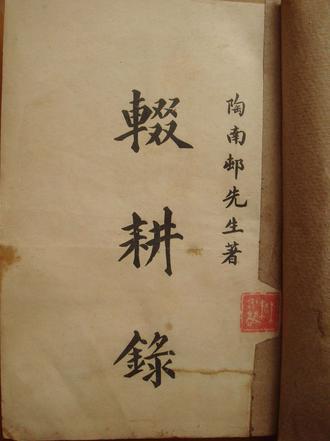 陶南邨先生著
輟耕錄